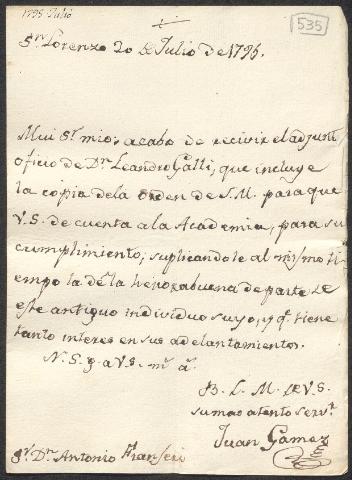 1795 Julio
535
Sn. Lorenzo 20 de Julio de 1795.
Mui Sr. mio: acabo de recivir el adjunto
oficio de Dn. Leandro Galli, que incluye
la copia dela orden de S.M. para que
V.S. de cuenta a la Academia, para su
cumplimiento; suplicandole al mismo ti-
empo la de la henorabuena de parte de
este antiguo individuo suyo, y q.e tiene
tanto interes en sus adelantamientos.
N. S. g. a V.S. m.s a.s
B. L. M. de V.S.
su mas atento serv.r
Juan Gamez
Sr. Dn. Antonio Franseri